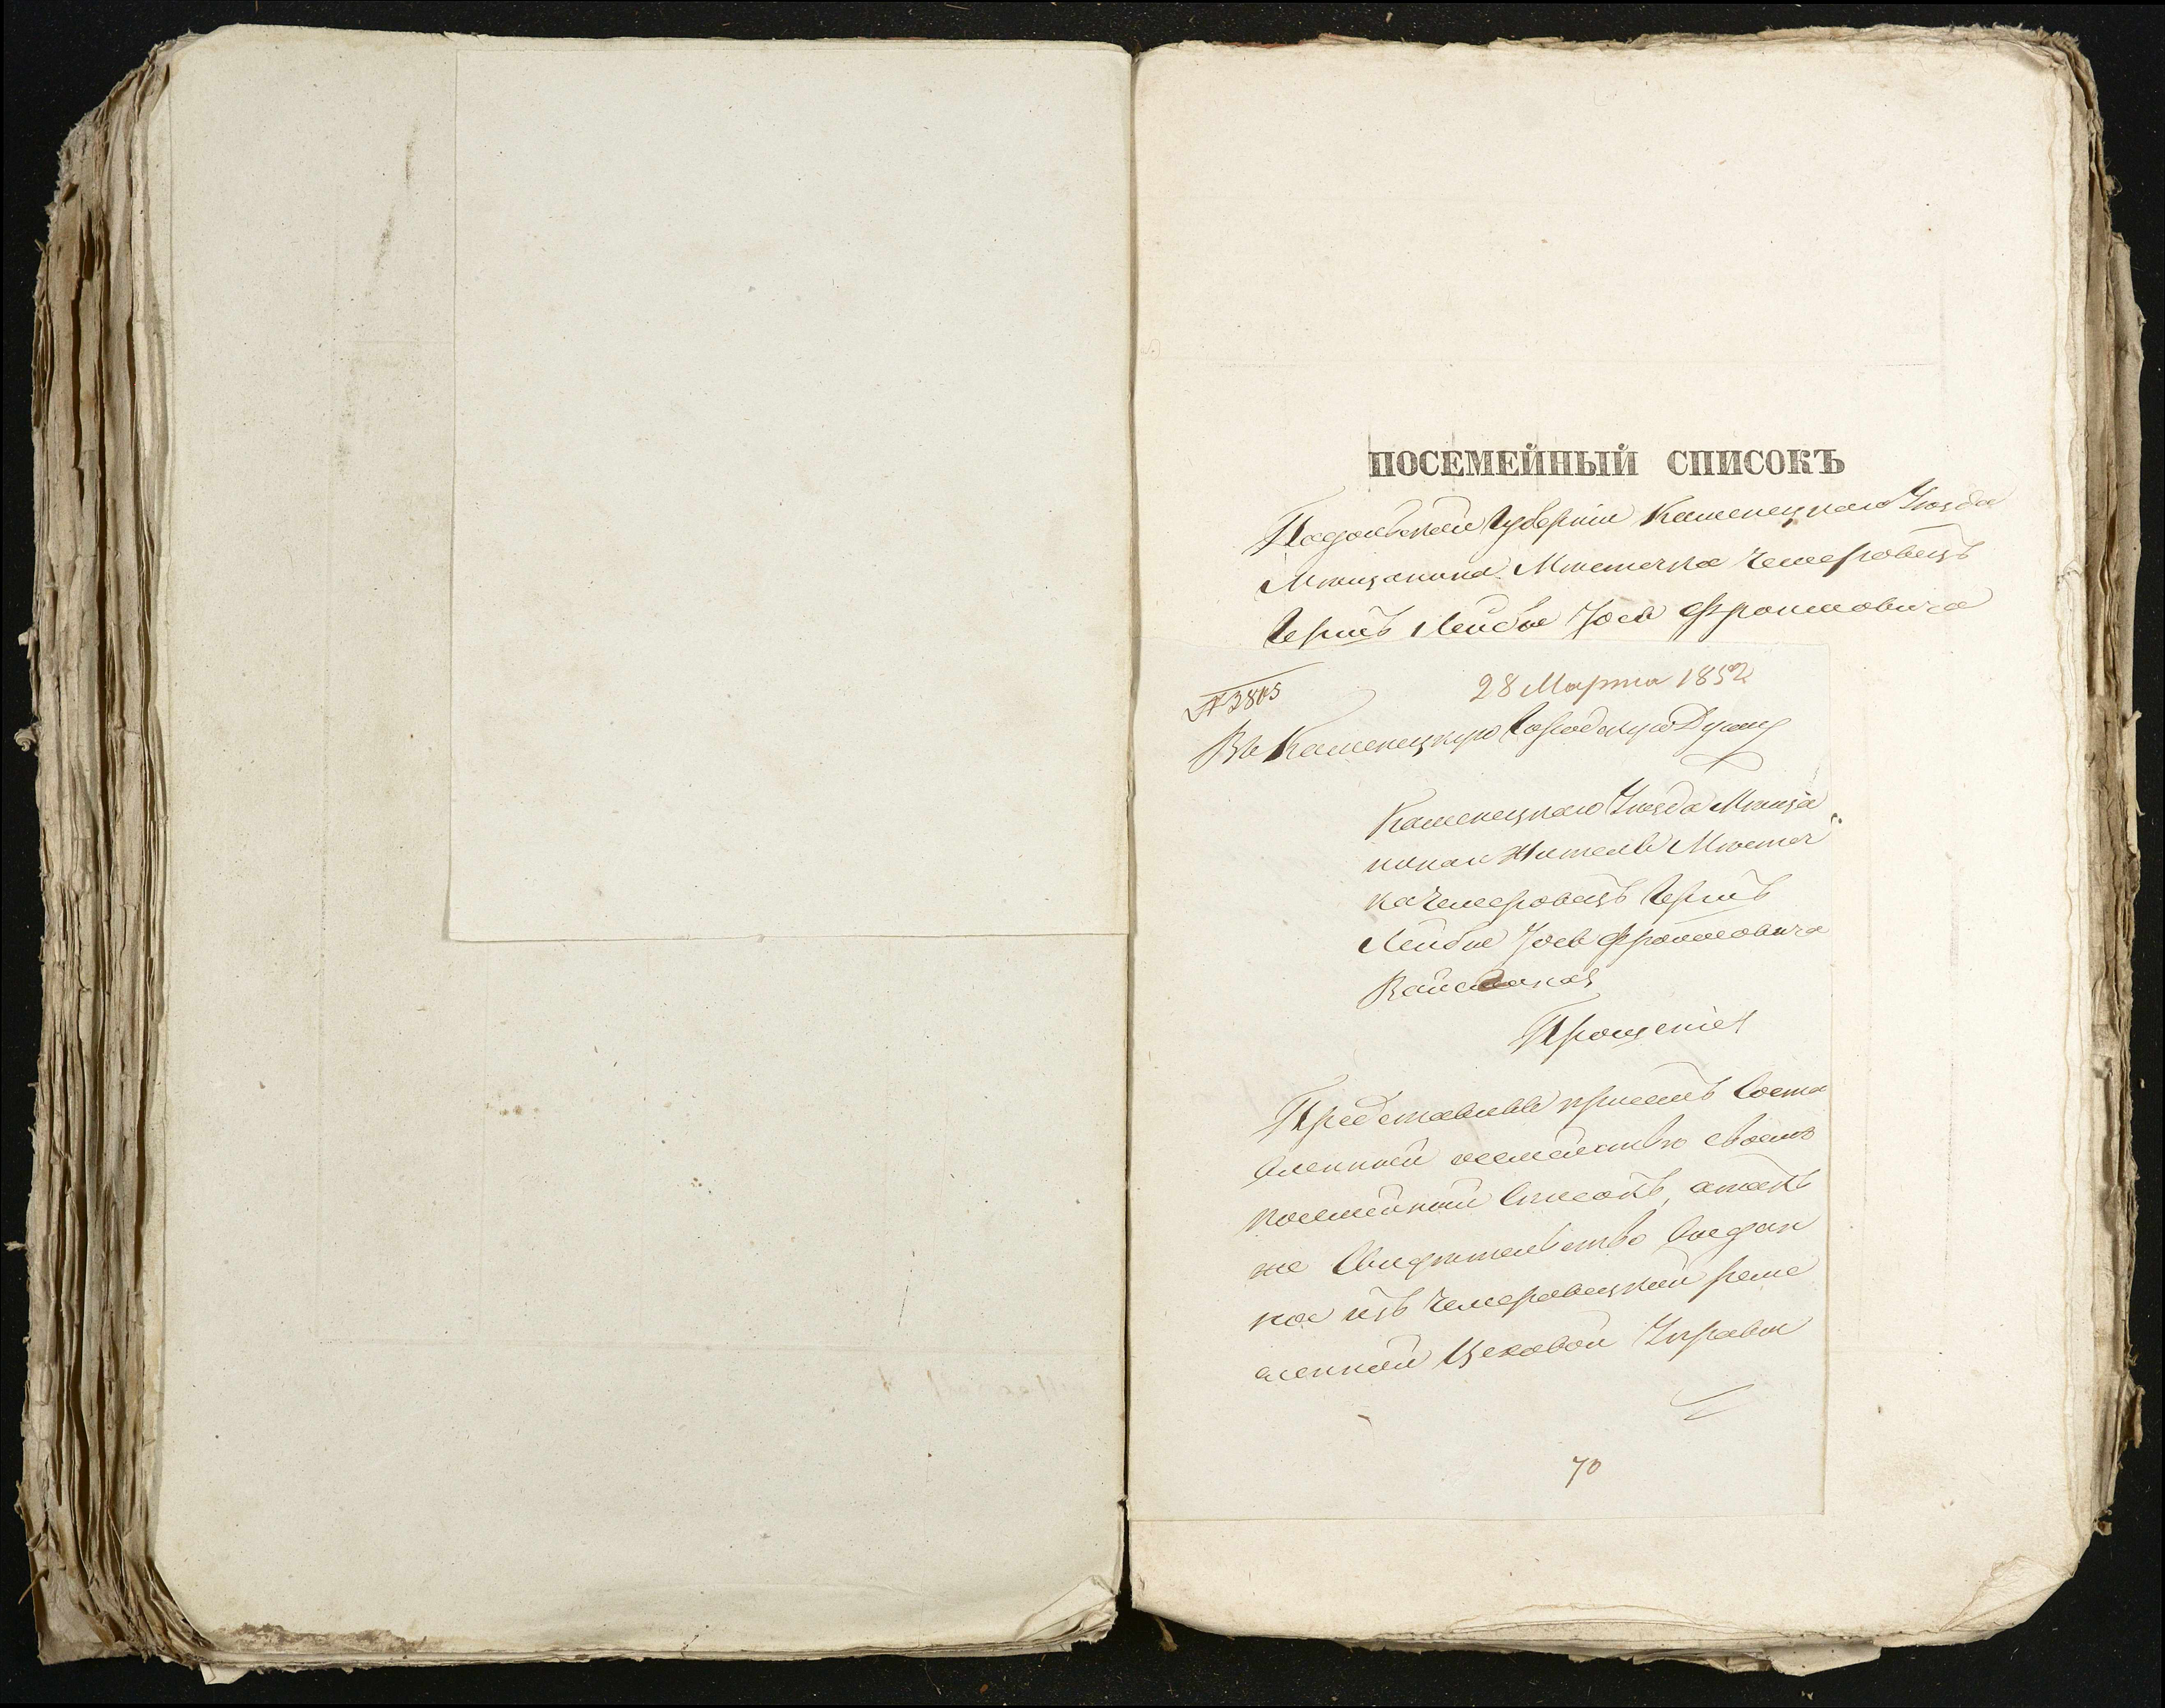 ПОСЕМЕЙНЫЙ СПИСОКЪ
Подольской Губерніи Каменецкаго Уѣзда
Мѣщанина Мѣстечка Чемеровецъ
Гершъ Лейбы Іосѣ Фроимовича
28 Марта 1852
Въ Каменецкую Городскую Думу
Каменецкаго Уѣзда Мѣща
нина Жителя Мѣстеч
ка Чемеровецъ Гершъ
Лейбы Іосѣ Фроимовича
Прошеніе
Представивъ при семъ Соста
вленный семейству своему
посемейный Списокъ, а такъ
же Свидѣтельство выдан
ное изъ Чемеровецкой реме
сленной Цеховой Управы
70